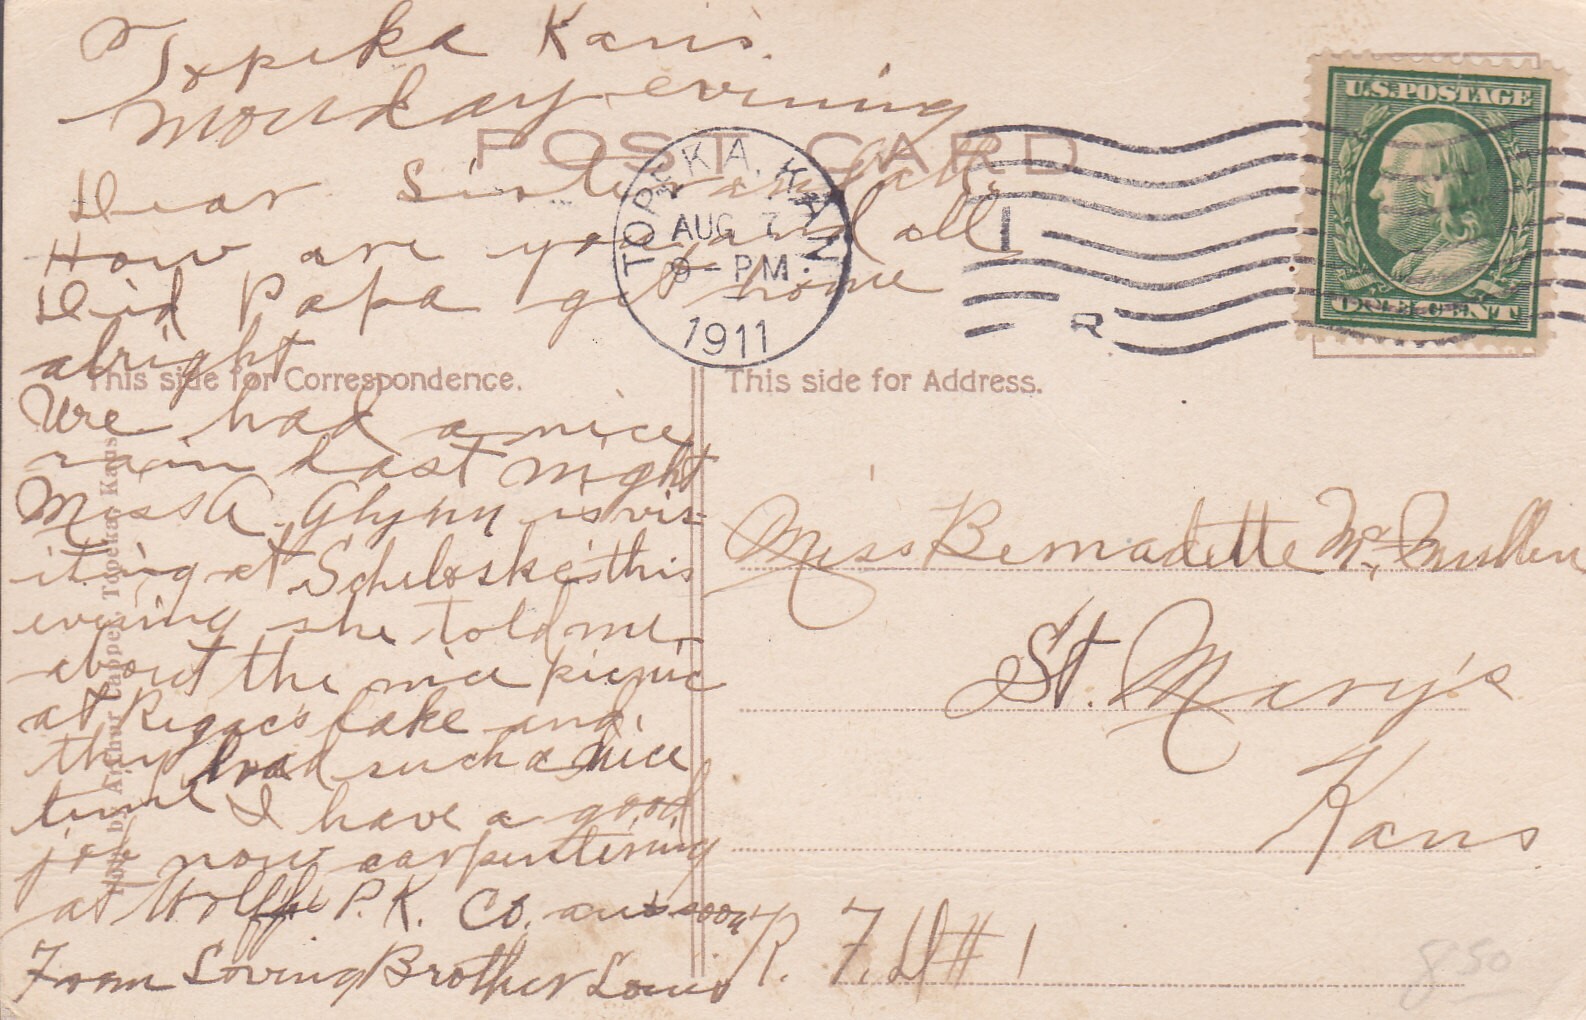 Topeka Kans.
Monday evening
POST CARD
Dear Sister and all
How are you and all
Did Papa get home
alright
This side for Correspondence.
We had a nice
rain last night
Miss A. Glynn is vis-
iting at this
evening she told me
about the nice picnic
at Lake and
they had such a nice
time I have a good
job now carpentering
at Wolff P. K. Co. soon
From Loving Brother Louis
by Arthur Capper, Topeka, Kans.
TOPEKA, KAN.
AUG 7
8 - PM
1911
1
R
U.S. POSTAGE
ONE CENT
This side for Address.
Miss Bernadette McMullen
St. Mary's
Kans
R. F. D # 1
8 50